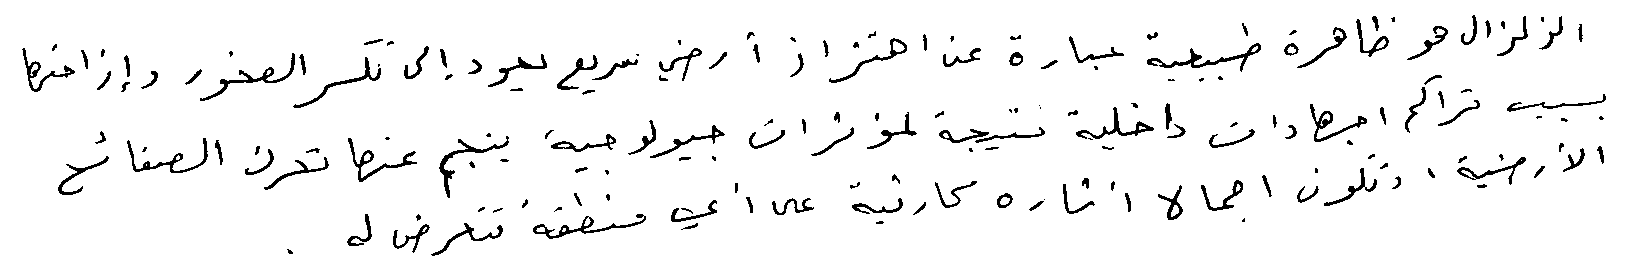 الزلزال هو ظاهرة طبيعية عبارة عن اهتزاز أرضي سريع يعود إلى تكسر الصخور وإزاحتها
بسبب تراكم اجهادات داخلية نتيجة لمؤثرات جيولوجية ينجم عنها تحرك الصفائح
الأرضية، وتكون اجمالا أثاره كارثية على أي منطقة تتعرض له .